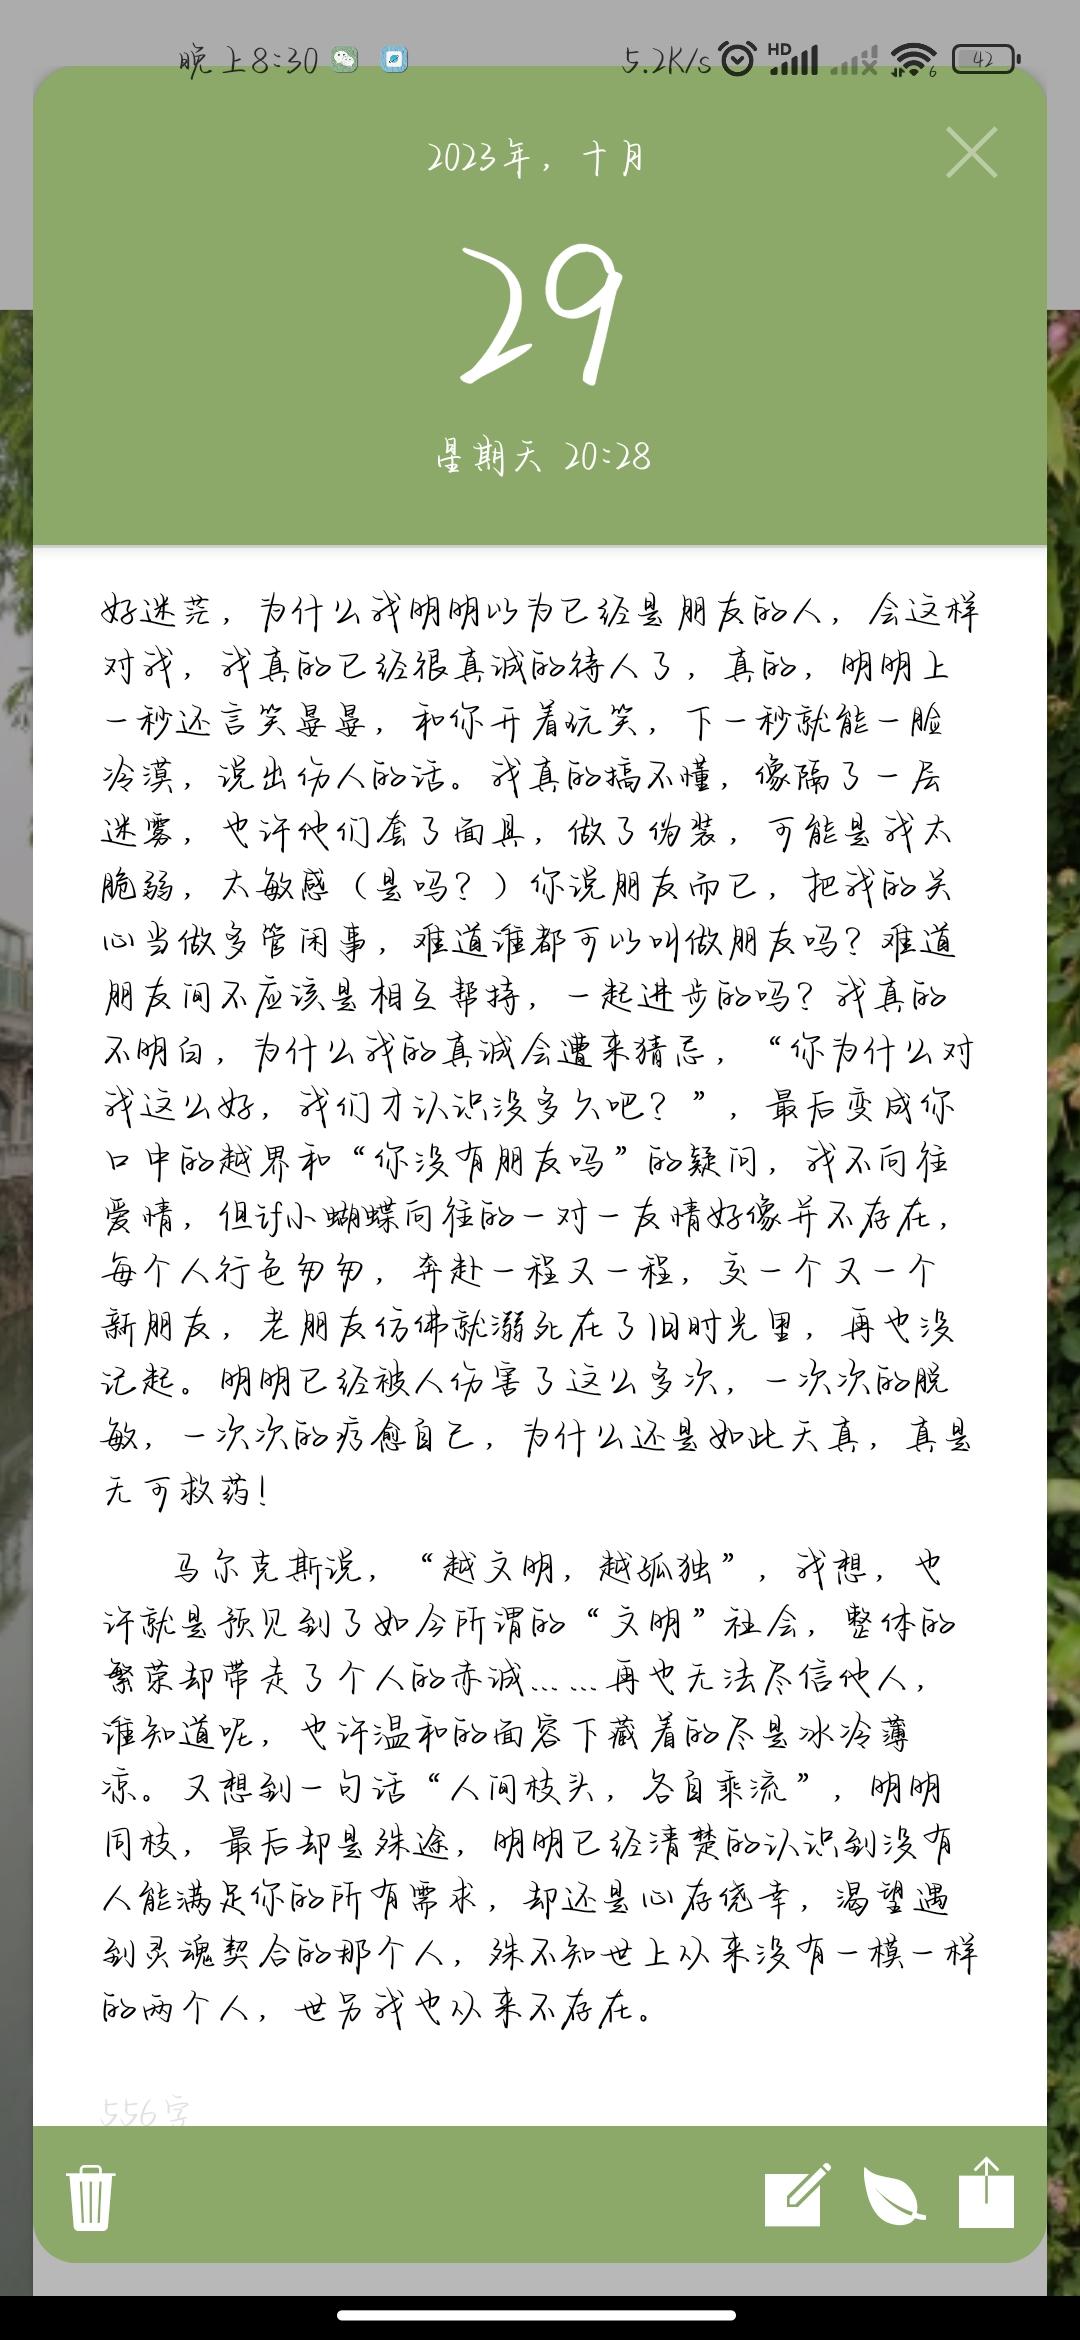 晚上8:30
5.2K/s HD 6 42
2023年，十月
29
星期天 20:28
好迷茫，为什么我明明以为已经是朋友的人，会这样
对我，我真的已经很真诚的待人了，真的，明明上
一秒还言笑晏晏，和你开着玩笑，下一秒就能一脸
冷漠，说出伤人的话。我真的搞不懂，像隔了一层
迷雾，也许他们套了面具，做了伪装，可能是我太
脆弱，太敏感（是吗？）你说朋友而已，把我的关
心当做多管闲事，难道谁都可以叫做朋友吗？难道
朋友间不应该是相互帮持，一起进步的吗？我真的
不明白，为什么我的真诚会遭来猜忌，“你为什么对
我这么好，我们才认识没多久吧？”，最后变成你
口中的越界和“你没有朋友吗”的疑问，我不向往
爱情，但讨小蝴蝶向往的一对一友情好像并不存在，
每个人行色匆匆，奔赴一程又一程，交一个又一个
新朋友，老朋友仿佛就溺死在了旧时光里，再也没
记起。明明已经被人伤害了这么多次，一次次的脱
敏，一次次的疗愈自己，为什么还是如此天真，真是
无可救药！
马尔克斯说，“越文明，越孤独”，我想，也
许就是预见到了如今所谓的“文明”社会，整体的
繁荣却带走了个人的赤诚……再也无法尽信他人，
谁知道呢，也许温和的面容下藏着的尽是冰冷薄
凉。又想到一句话“人间枝头，各自乘流”，明明
同枝，最后却是殊途，明明已经清楚的认识到没有
人能满足你的所有需求，却还是心存侥幸，渴望遇
到灵魂契合的那个人，殊不知世上从来没有一模一样
的两个人，世另我也从来不存在。
556字